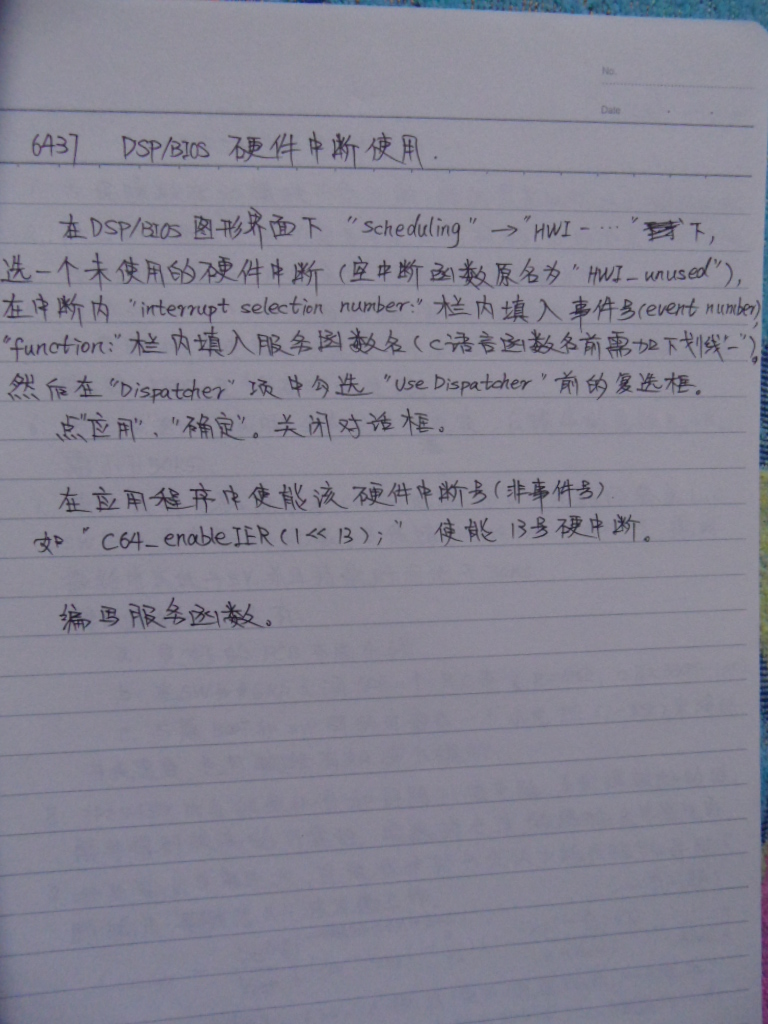 No.
Date
6437 DSP/BIOS 硬件中断使用.
在DSP/BIOS 图形界面下 "scheduling" → "HWI-…" 下,
选一个未使用的硬件中断 (空中断函数原名为 "HWI_unused"),
在中断内 "interrupt selection number:" 栏内填入事件号(event number),
"function:" 栏内填入服务函数名 (C语言函数名前需加下划线"-")。
然后在 "Dispatcher" 项中勾选 "Use Dispatcher" 前的复选框。
点"应用"、"确定"。关闭对话框。
在应用程序中使能该硬件中断号(非事件号)
如 "C64_enableIER(1<<13);" 使能 13号硬中断。
编写服务函数。